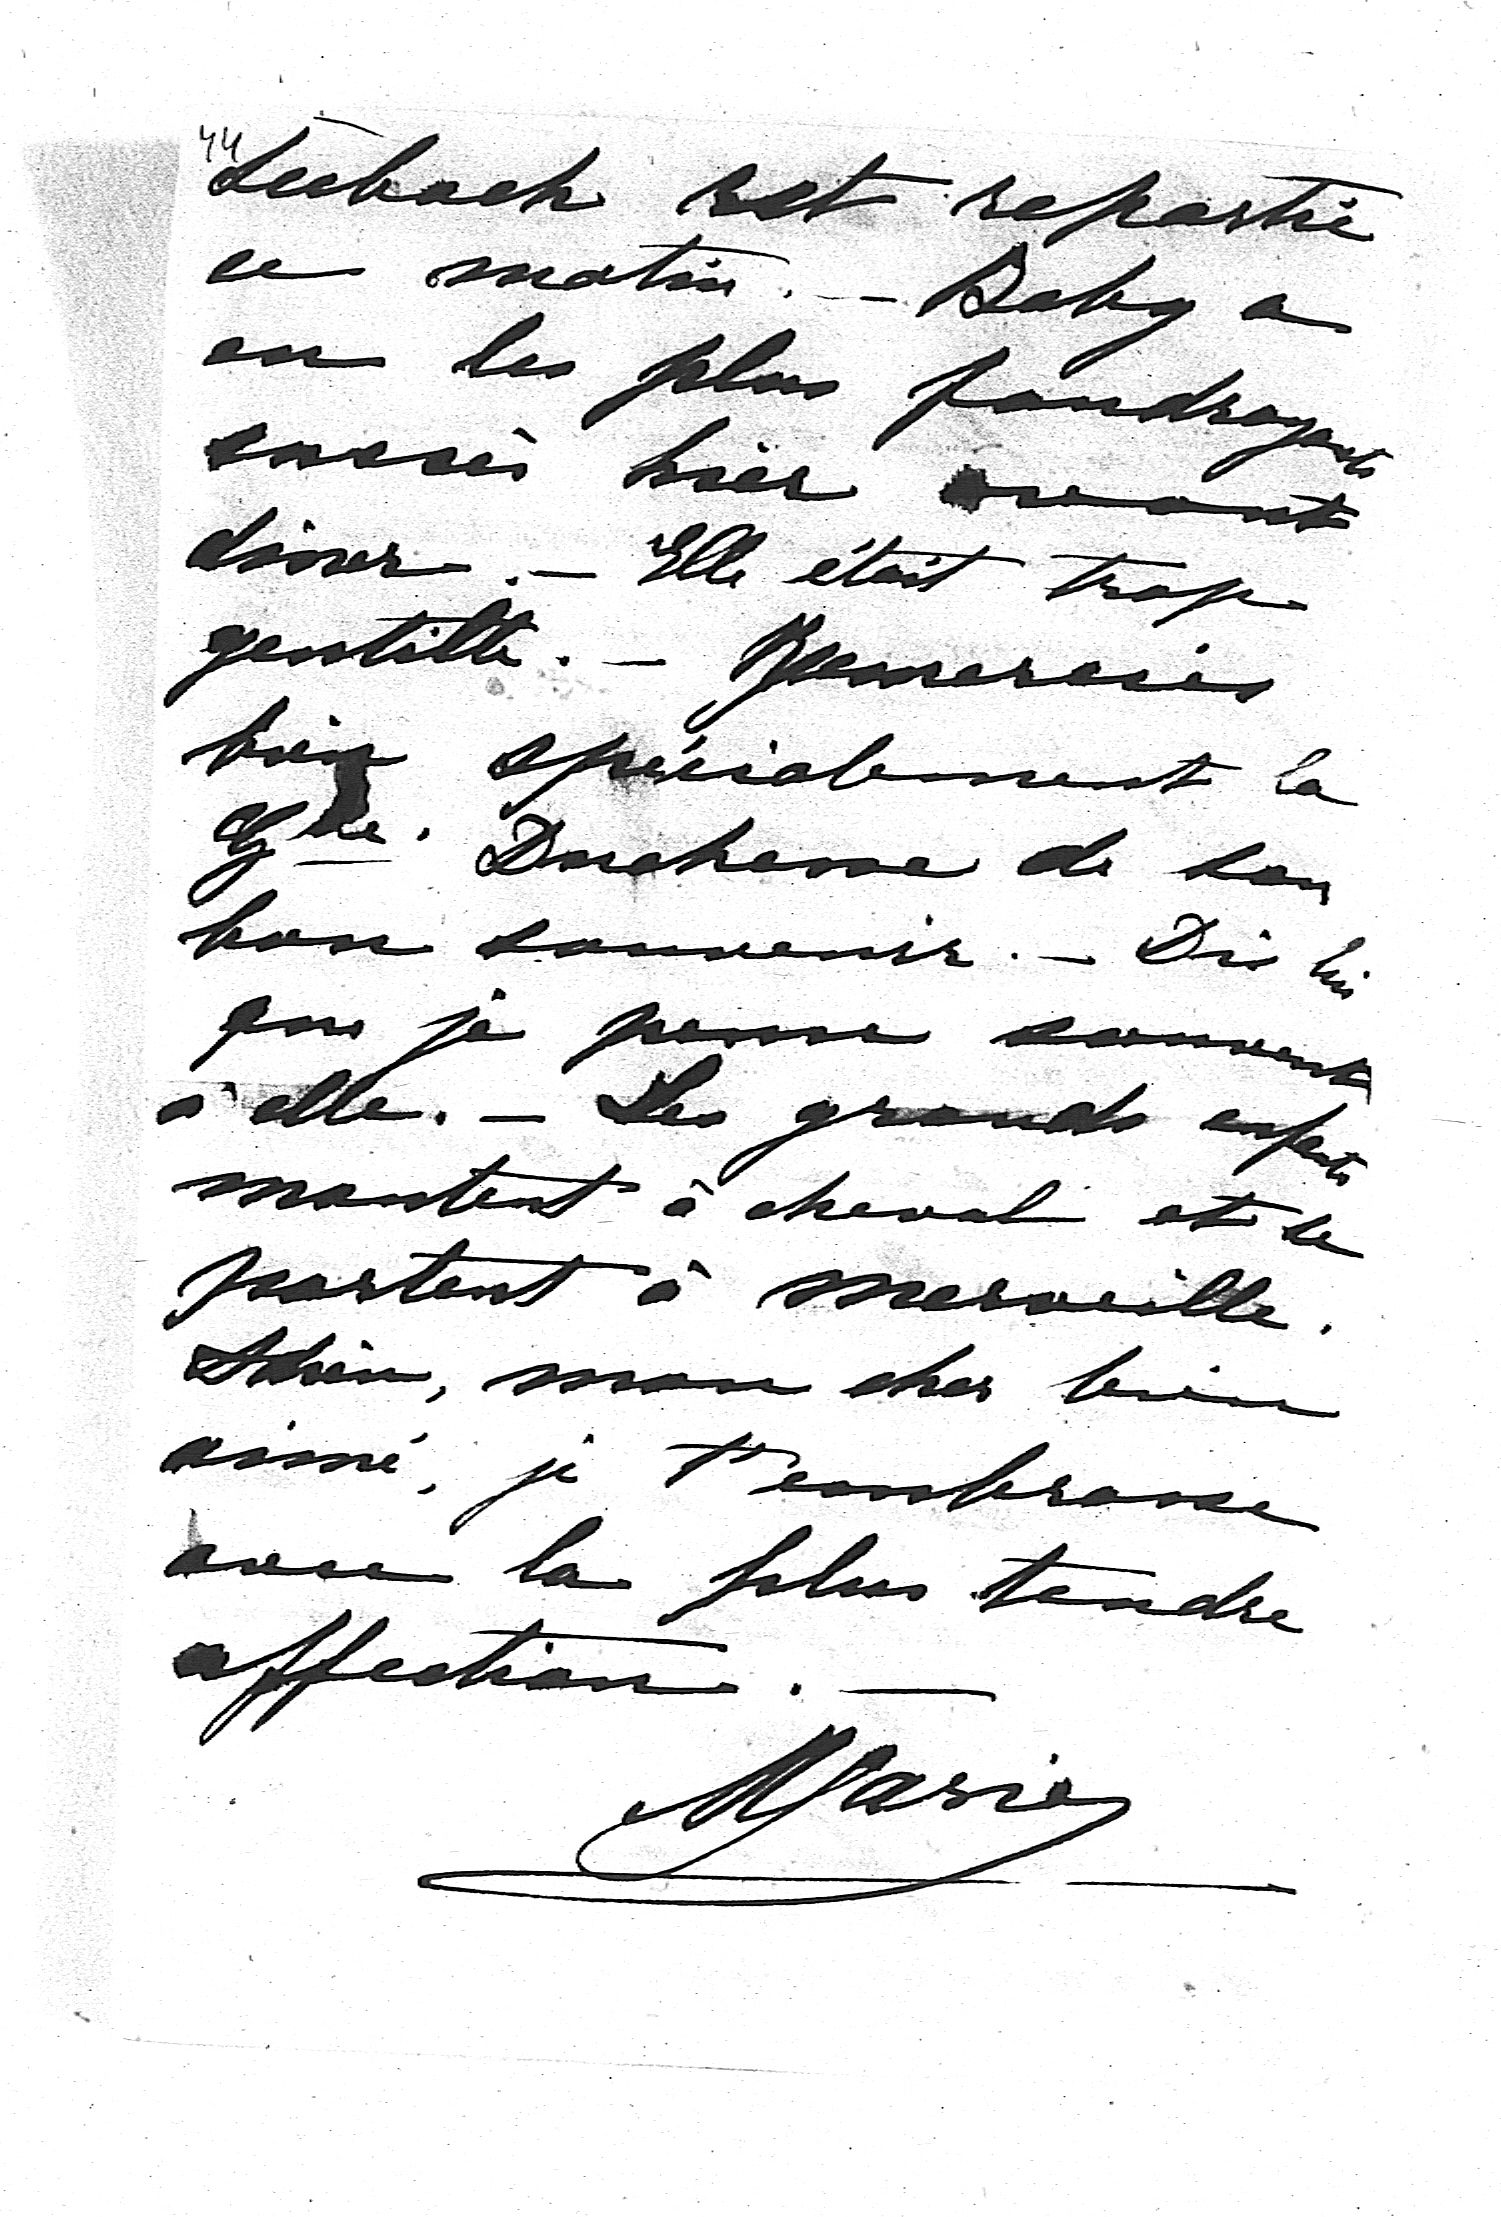 44
Seebach est repartie
ce matin. – Baby a
eu les plus foudroyants
succès hier avant
diner. – Elle était trop
gentille. – Remercies
bien spécialement la
Gde. Duchesse de son
bon souvenir. – Dis lui
que je pense souvent
à elle. – Les grands enfants
montent à cheval et se
portent à merveille.
Adieu, mon cher bien
aimé, je t'embrasse
avec la plus tendre
affection. –
Marie